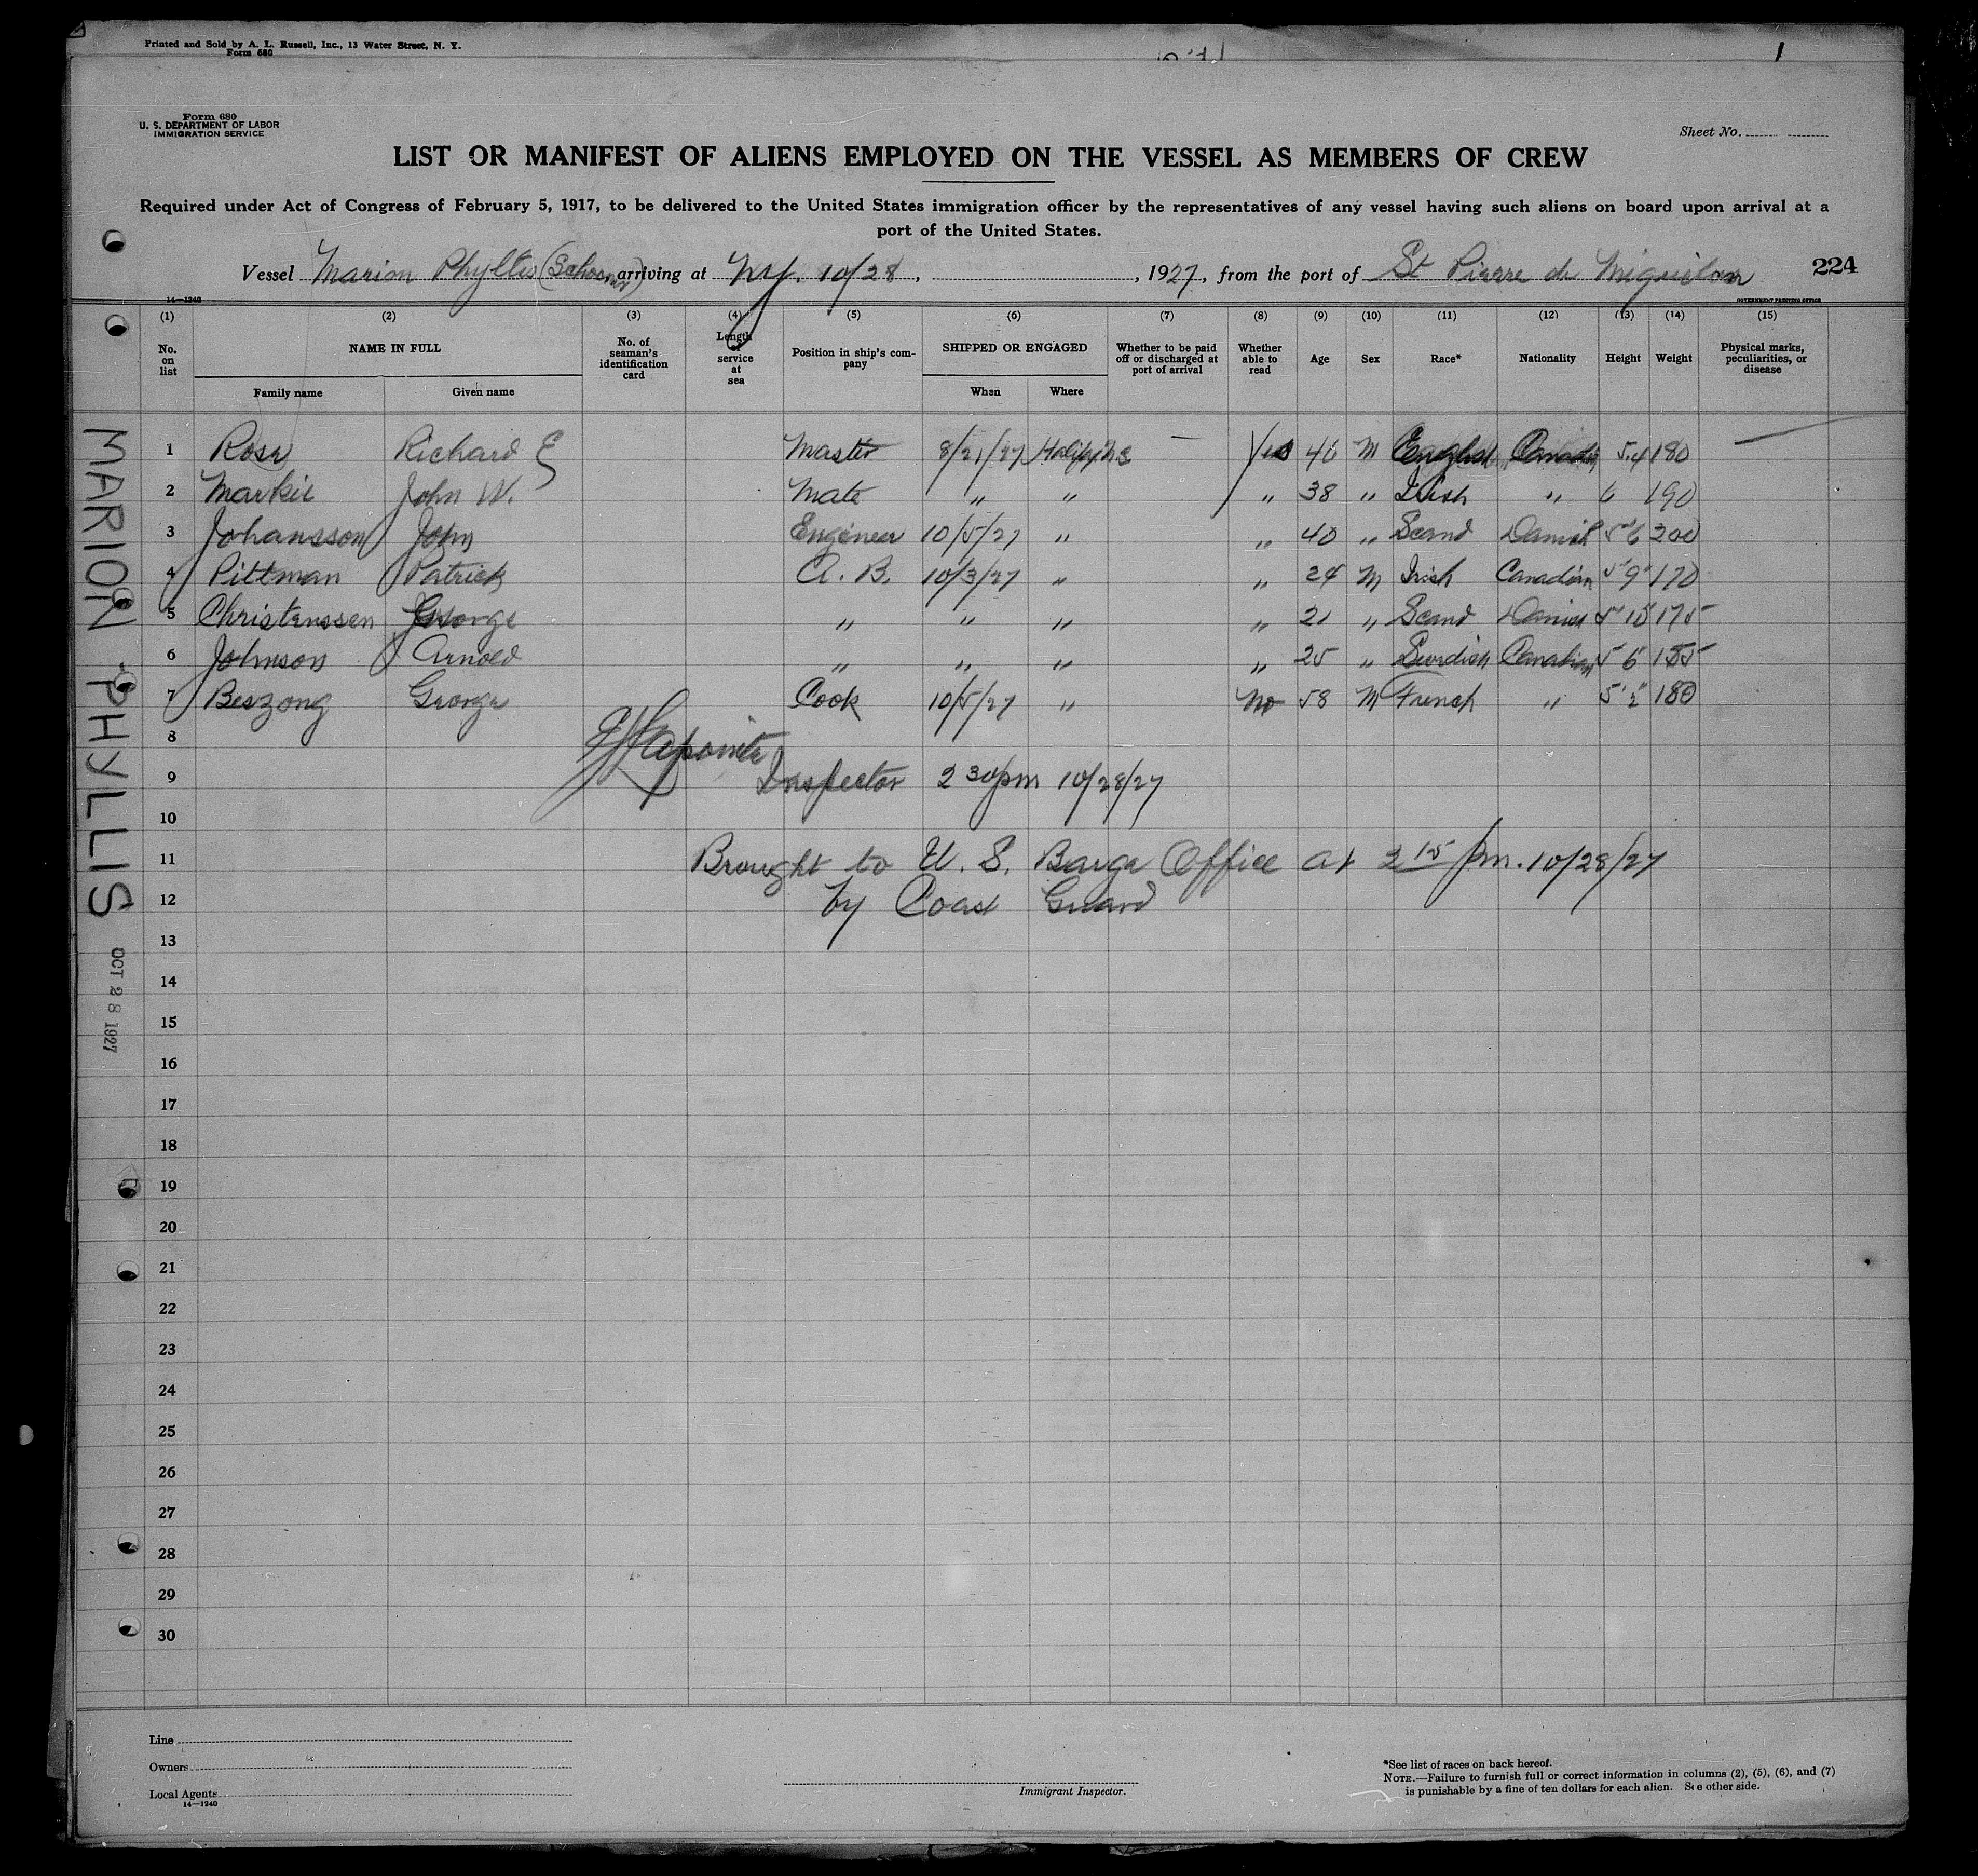 Printed and Sold by A. L. Russell, Inc., 13 Water Street, N. Y.
Form 680
1
Form 680
U. S. DEPARTMENT OF LABOR
IMMIGRATION SERVICE
Sheet No.
LIST OR MANIFEST OF ALIENS EMPLOYED ON THE VESSEL AS MEMBERS OF CREW
Required under Act of Congress of February 5, 1917, to be delivered to the United States immigration officer by the representatives of any vessel having such aliens on board upon arrival at a
port of the United States.
Vessel Marion Phyllis (Schooner) arriving at N.Y. 10/28, , 1927, from the port of St Pierre de Miquelon 224
14—1240 GOVERNMENT PRINTING OFFICE
(1) (2) (3) (4) (5) (6) (7) (8) (9) (10) (11) (12) (13) (14) (15)
No. on list NAME IN FULL No. of seaman's identification card Length of service at sea Position in ship's company SHIPPED OR ENGAGED Whether to be paid off or discharged at port of arrival Whether able to read Age Sex Race* Nationality Height Weight Physical marks, peculiarities, or disease
Family name Given name When Where
1 Rose Richard E Master 8/21/27 Halifax N.S Yes 46 M English Canadian 5.4 180
2 Markie John W. Mate " " " 38 " Irish " 6 190
3 Johansson John Engineer 10/5/27 " " 40 " Scand Danish 5'6 200
4 Pittman Patrick A. B. 10/3/27 " " 24 M Irish Canadian 5'9" 170
5 Christenssen George " " " " 21 " Scand Danish 5'10 175
6 Johnson Arnold " " " " 25 " Swedish Canadian 5 6 155
7 Beszong George Cook 10/5/27 " No 58 M French " 5'2" 180
8
Lapointe
9 Inspector 2 30 pm 10/28/27
10
11 Brought to U. S. Barge Office at 2 15 pm. 10/28/27
12 by Coast Guard
13
14
15
16
17
18
19
20
21
22
23
24
25
26
27
28
29
30
MARION PHYLLIS OCT 28 1927
Line
Owners
Local Agents
14—1240
Immigrant Inspector.
*See list of races on back hereof.
NOTE.—Failure to furnish full or correct information in columns (2), (5), (6), and (7)
is punishable by a fine of ten dollars for each alien. See other side.